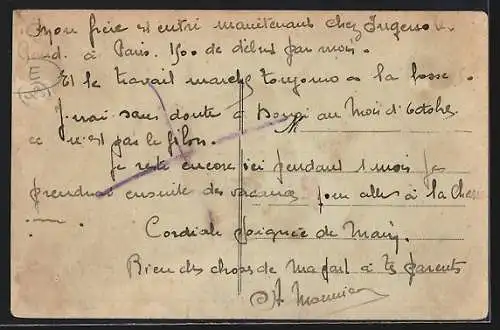 Mon frère est entré maintenant chez Ingerso
Rand. à Paris. 1500 de début par mois.
Et le travail marche toujours à la fosse.
J'irai sans doute à au Mois d'Octobre
ce n'est pas le filon.
Je reste encore ici pendant 1 mois je
prendrai ensuite des vacances pour aller à la
Cordiale poignée de Main.
Bien des choses de ma part à tes parents